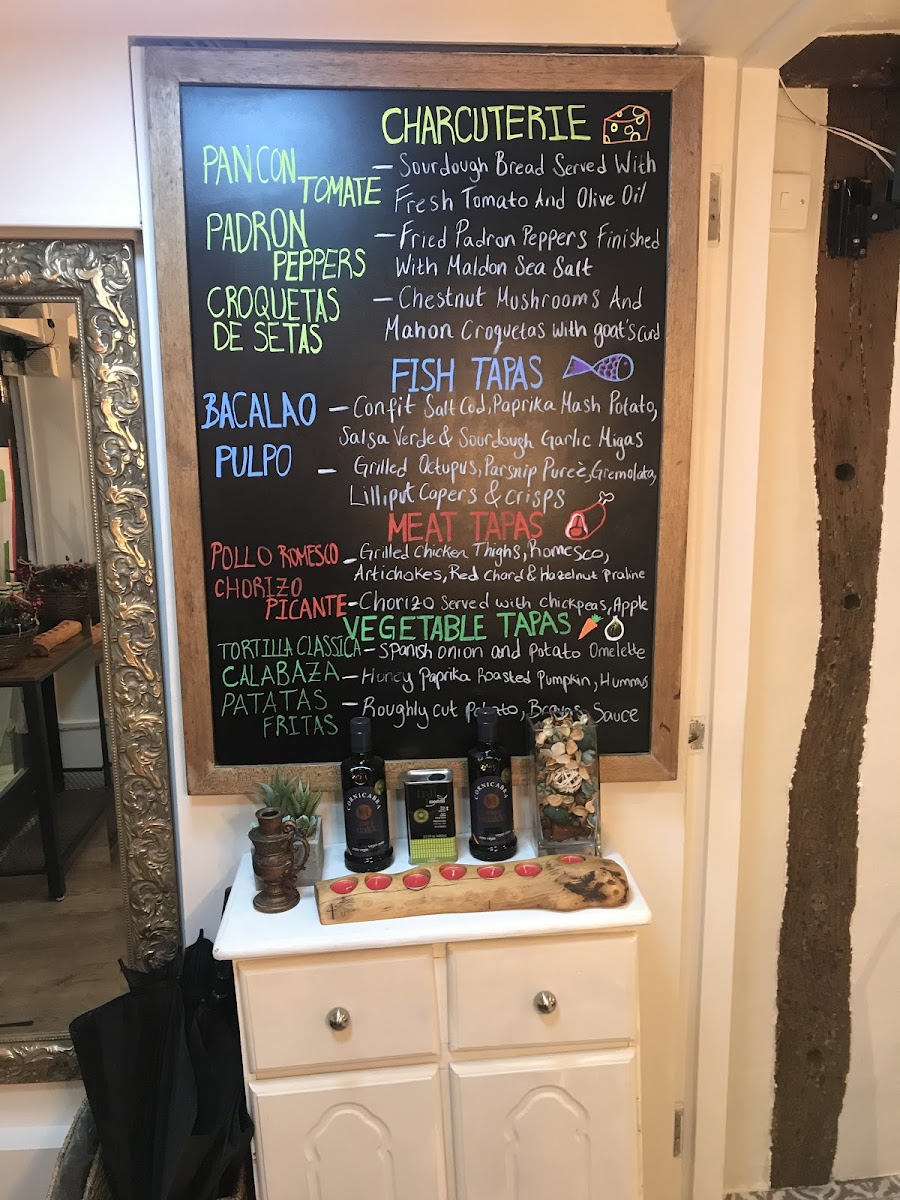 CHARCUTERIE
PAN CON TOMATE - Sourdough Bread Served With
Fresh Tomato And Olive Oil
PADRON PEPPERS - Fried Padron Peppers Finished
With Maldon Sea Salt
CROQUETAS DE SETAS - Chestnut Mushrooms And
Mahon Croquetas with goat's curd
FISH TÁPAS
BACALAO - Confit Salt Cod, Paprika Mash Potato,
Salsa Verde & Sourdough Garlic Migas
PULPO - Grilled Octupus, Parsnip Pureè, Gremolata,
Lilliput Capers & Crisps
MEAT TAPAS
POLLO ROMESCO - Grilled Chicken Thighs, Romesco,
Artichokes, Red Chard & Hazelnut Praline
CHORIZO PICANTE - Chorizo Served with chickpeas, Apple
VEGETABLE TAPAS
TORTILLA CLASSICA - Spanish onion and potato Omelette
CALABAZA - Honey Paprika Roasted Pumpkin, Hummus
PATATAS FRITAS - Roughly cut Potato, Bravas Sauce
CORNICABRA
CORNICABRA